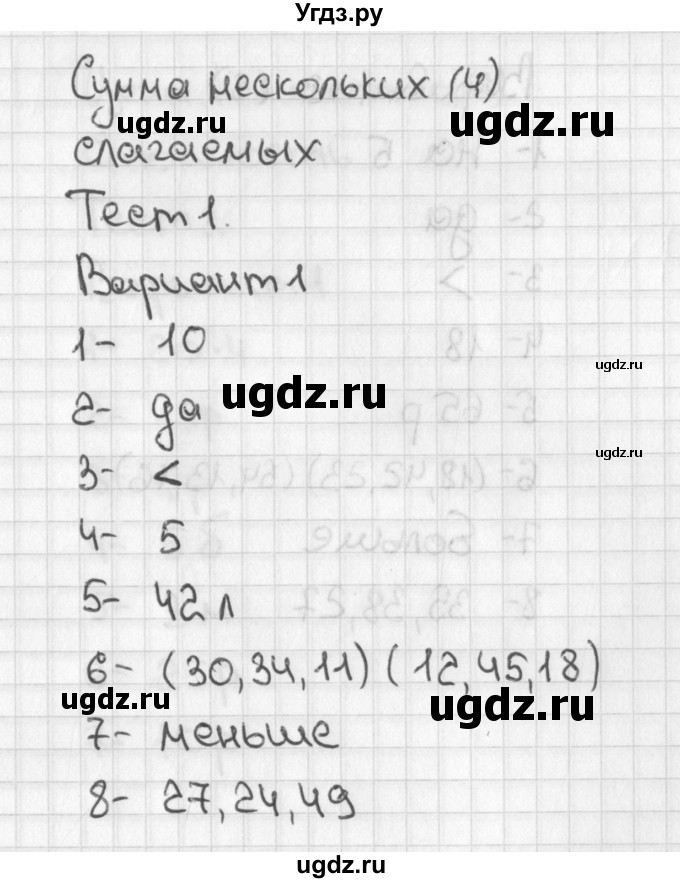 Угдз.ру
Сумма нескольких (4)
ugdz.ru ugdz.ru
слагаемых
Тест 1.
Вариант 1
1- 10
ugdz.ru
ugdz.ru
2- да
3- <
4- 5
5- 42 л
6- (30,34,11) (12,45,18)
ugdz.ru ugdz.ru
7- меньше
8- 27,24,49
ugdz.ru